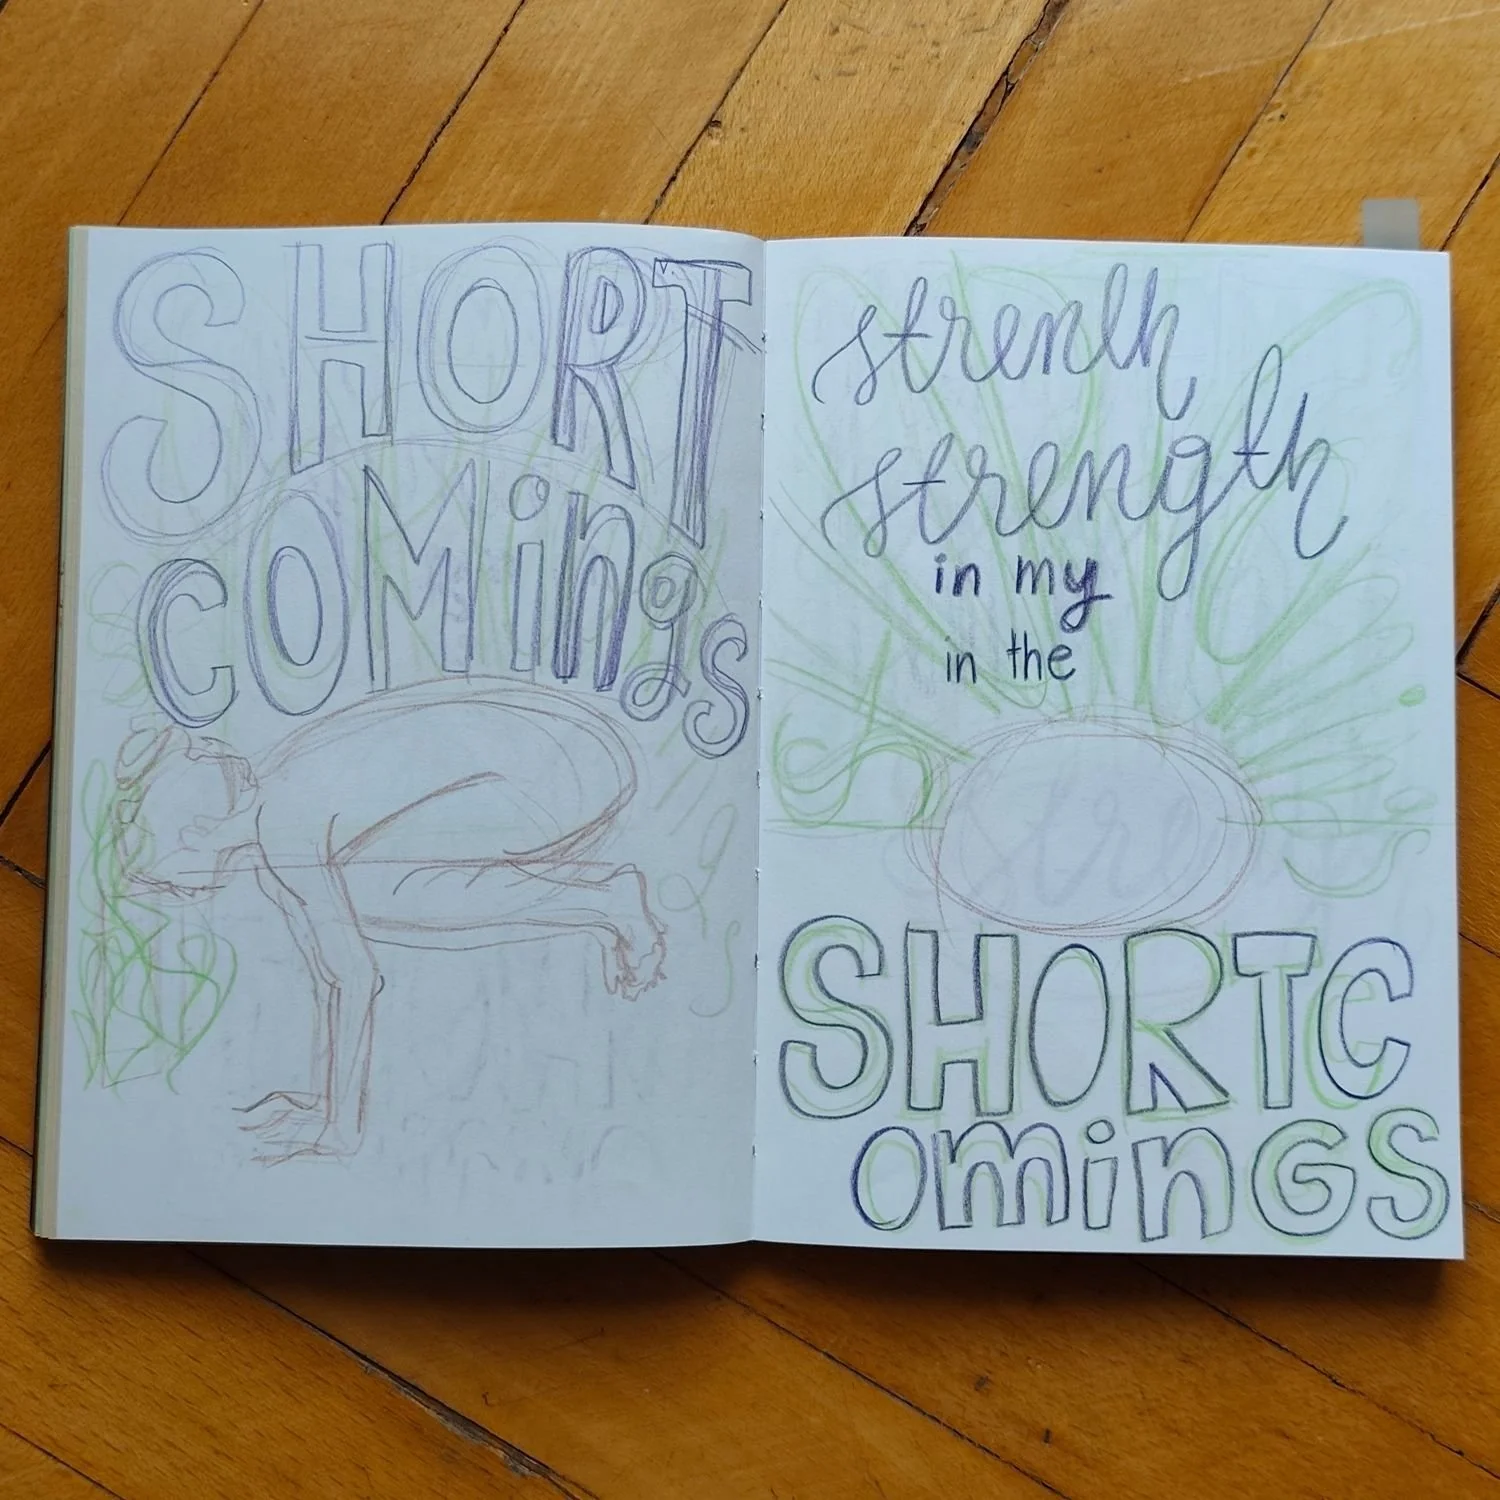 SHORT
COMings
strenth
strength
in my
in the
SHORTC
OminGS